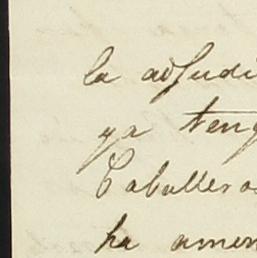 la adjudi
ya teng
Caballeros
ha amen